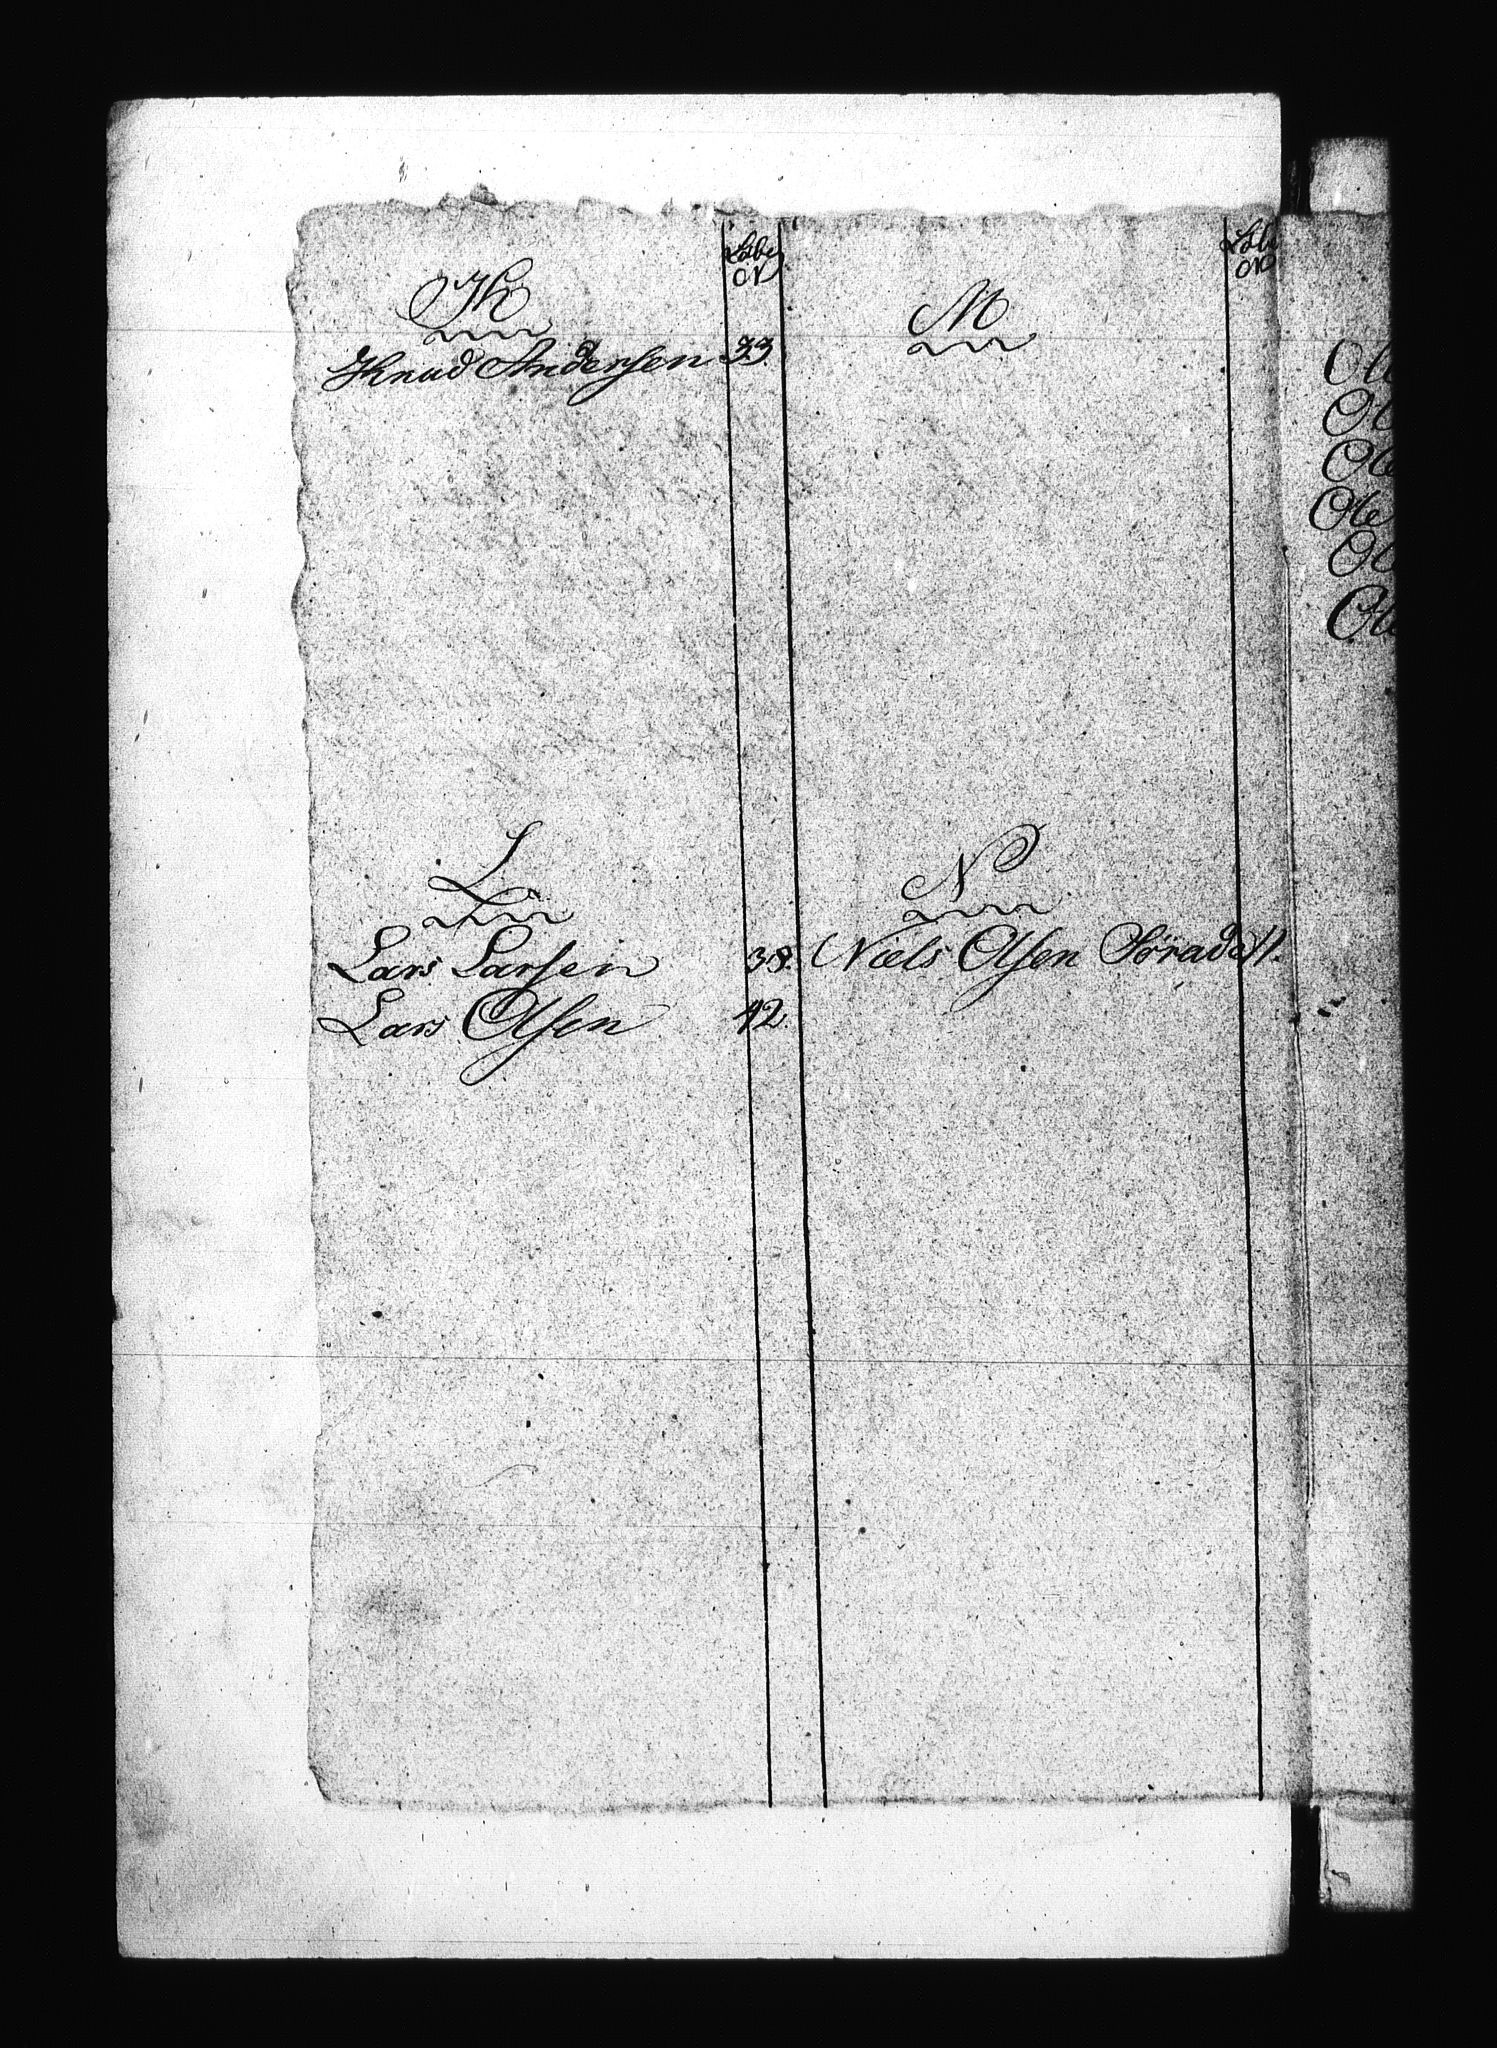 Løbe
No
K
Knud Andersen 33
L
Lars Larsen 38.
Lars Olsen 42.
Løbe
No
M
N
Niels Olsen Sørade 11.
Ole
Ole
Ole
Ole
Ole
Ole